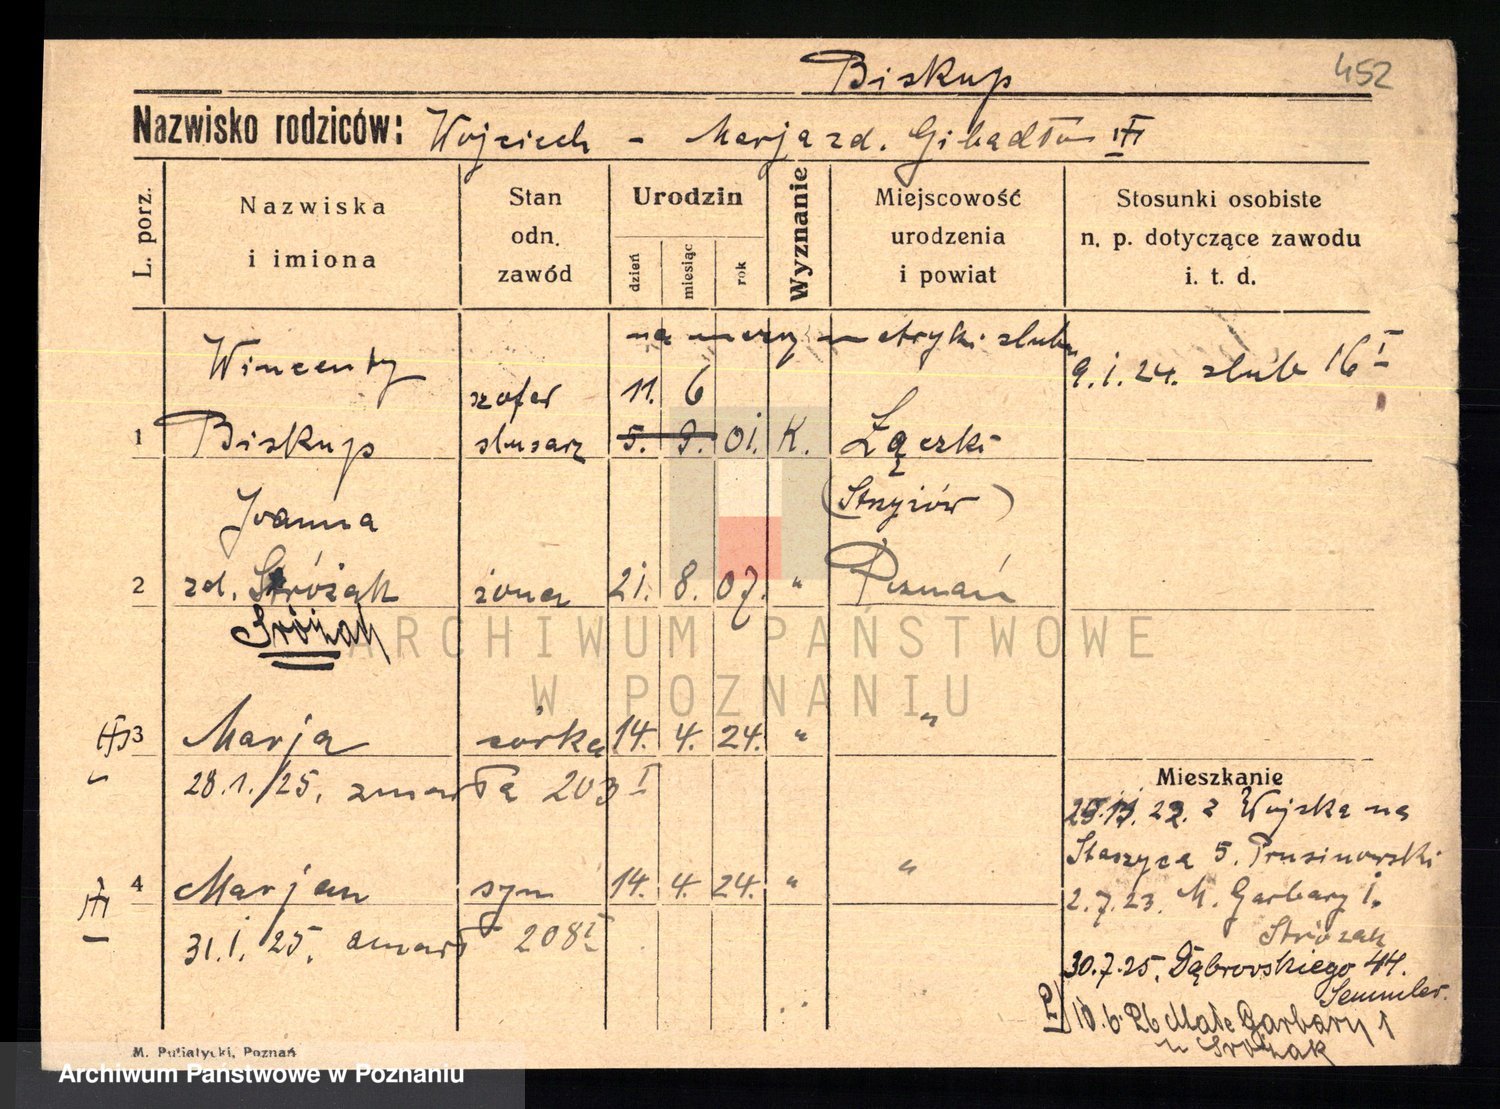 Biskup 452
Nazwisko rodziców: Wojciech - Marja zd. Gibadło
L. porz.
Nazwiska
i imiona
Stan
odn.
zawód
Urodzin
dzień
miesiąc
rok
Wyznanie
Miejscowość
urodzenia
i powiat
Stosunki osobiste
n. p. dotyczące zawodu
i. t. d.
na mocy metryki ślubu
Wincenty szofer 11. 6 9.1.24. ślub 16 I
1 Biskup ślusarz 5. 9. 01. K. Łączki
(Strzyżów)
Joanna
2 zd. Stróżak żona 21. 8. 07. " Poznań
Sróżak
ARCHIWUM PAŃSTWOWE
W POZNANIU
3 Marja córka 14. 4. 24. " "
28.1./25. zmarła 203 I
4 Marjan syn 14. 4. 24. " "
31.1.25. zmarł 208 I
Mieszkanie
22. z Wojska na
Staszyca 5. Prusinowski
2.7.23. M. Garbary 1.
Stróżak
30.7.25. Dąbrowskiego 44.
Semmler.
10.6.26 Małe Garbary 1
u Sróżak
M. Putiatycki, Poznań
Archiwum Państwowe w Poznaniu